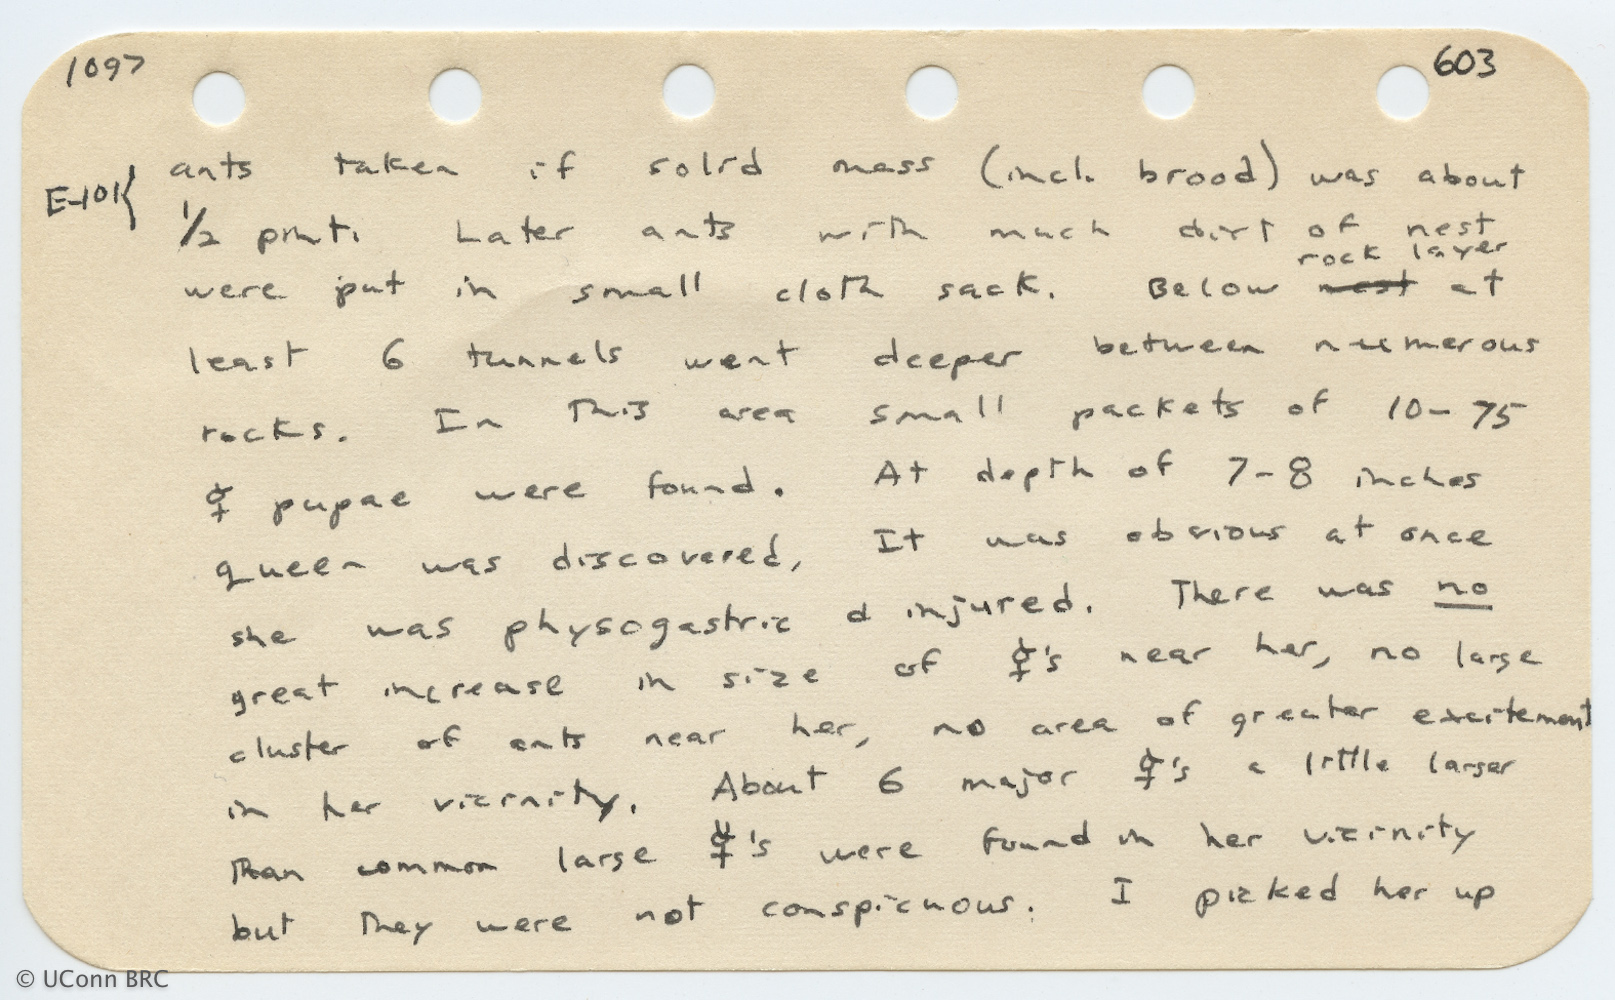 1097
603
E-101{ ants taken if solid mass (incl. brood) was about
1/2 pint. Later ants with much dirt of nest
rock layer
were put in small cloth sack. Below nest at
least 6 tunnels went deeper between numerous
rocks. In this area small packets of 10-75
☿ pupae were found. At depth of 7-8 inches
queen was discovered, It was obvious at once
she was physogastric d injured. There was no
great increase in size of ☿'s near her, no large
cluster of ants near her, no area of greater excitement
in her vicinity. About 6 major ☿'s a little larger
than common large ☿'s were found in her vicinity
but they were not conspicuous. I picked her up
© UConn BRC